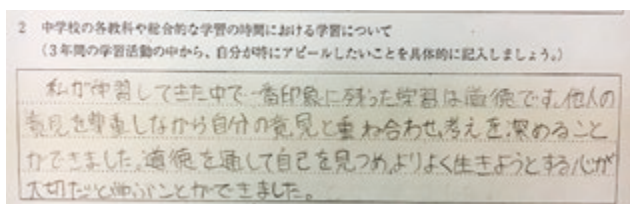 2 中学校の各教科や総合的な学習の時間における学習について
(3年間の学習活動の中から、自分が特にアピールしたいことを具体的に記入しましょう。)
私が学習してきた中で一番印象に残った学習は道徳です。他人の
意見を尊重しながら自分の意見と重ね合わせ、考えを深めること
ができました。道徳を通して自己を見つめ、よりよく生きようとする心が
大切だと学ぶことができました。